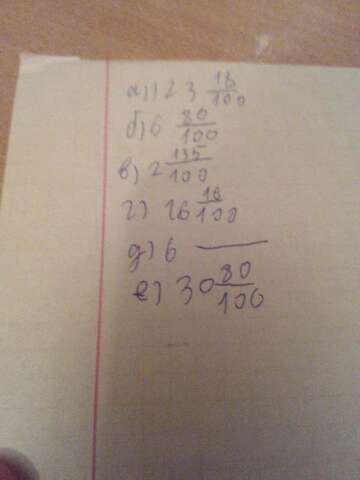 а) 123 18/100
б) 6 80/100
в) 2 135/100
г) 26 18/100
д) 6 —
е) 30 80/100